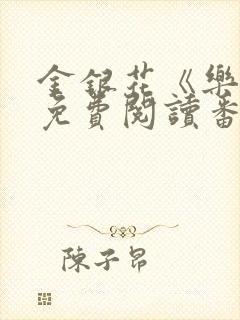 金銀花《樂
免費閱讀番
陳子昂